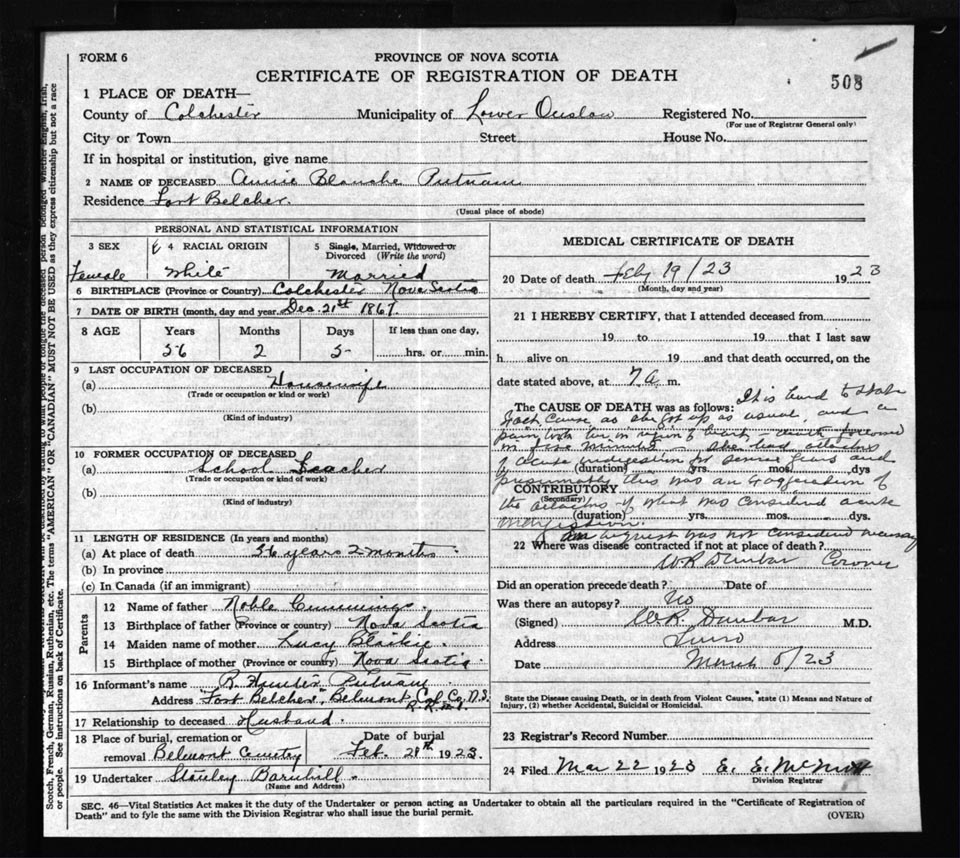 FORM 6
PROVINCE OF NOVA SCOTIA
CERTIFICATE OF REGISTRATION OF DEATH
508
1 PLACE OF DEATH—
County of Colchester Municipality of Lower Onslow Registered No.
(For use of Registrar General only)
City or Town Street House No.
If in hospital or institution, give name
2 NAME OF DECEASED Annie Blanche Putnam
Residence Fort Belcher.
(Usual place of abode)
PERSONAL AND STATISTICAL INFORMATION
3 SEX 4 RACIAL ORIGIN 5 Single, Married, Widowed or
Divorced (Write the word)
Female White Married
6 BIRTHPLACE (Province or Country) Colchester Nova Scotia
7 DATE OF BIRTH (month, day and year. Dec. 21st 1867.
8 AGE Years Months Days If less than one day,
56 2 5 hrs. or min.
9 LAST OCCUPATION OF DECEASED
(a) Housewife
(Trade or occupation or kind or work)
(b)
(Kind of industry)
10 FORMER OCCUPATION OF DECEASED
(a) School Teacher
(Trade or occupation or kind of work)
(b)
(Kind of industry)
11 LENGTH OF RESIDENCE (In years and months)
(a) At place of death 56 years 2 months
(b) In province
(c) In Canada (if an immigrant)
Parents
12 Name of father Noble Cummings
13 Birthplace of father (Province or country) Nova Scotia
14 Maiden name of mother Lucy Blaikie
15 Birthplace of mother (Province or country) Nova Scotia
16 Informant's name R. Hunter Putnam
Address "Fort Belcher" Belmont Col. Co. N.S.
R.R. No 1.
17 Relationship to deceased Husband.
18 Place of burial, cremation or Date of burial
removal Belmont Cemetry Feb. 21th 1923.
19 Undertaker Stanley Barnhill
(Name and Address)
MEDICAL CERTIFICATE OF DEATH
20 Date of death Feby 19/23 1923
(Month, day and year)
21 I HEREBY CERTIFY, that I attended deceased from
19 to 19 that I last saw
h alive on 19 and that death occurred, on the
date stated above, at 7 a m.
The CAUSE OF DEATH was as follows: It is hard to state
cause as she got up as usual, and a
pain took her in region of heart – death followed
in few minutes – she had attacks
of acute indigestion for some years and
(duration) yrs. mos. dys
presumably this was an exaggeration of
CONTRIBUTORY
(Secondary)
the attacks of what was considered acute
(duration) yrs. mos. dys.
indigestion.
inquest was not considered necessary
22 Where was disease contracted if not at place of death?
W.R. Dunbar Coroner
Did an operation precede death? Date of
Was there an autopsy? No
(Signed) W.R. Dunbar M.D.
Address Truro
Date March 5/23
State the Disease causing Death, or in death from Violent Causes, state (1) Means and Nature of
Injury, (2) whether Accidental, Suicidal or Homicidal.
23 Registrar's Record Number
24 Filed Mar 22 1923 E. E. McNutt
Division Registrar
SEC. 46—Vital Statistics Act makes it the duty of the Undertaker or person acting as Undertaker to obtain all the particulars required in the "Certificate of Registration of
Death" and to fyle the same with the Division Registrar who shall issue the burial permit.
(OVER)
Scotch, French, German, Russian, Ruthenian, etc. The terms "AMERICAN" OR "CANADIAN" MUST NOT BE USED as they express citizenship but not a race
or people. See instructions on back of Certificate.